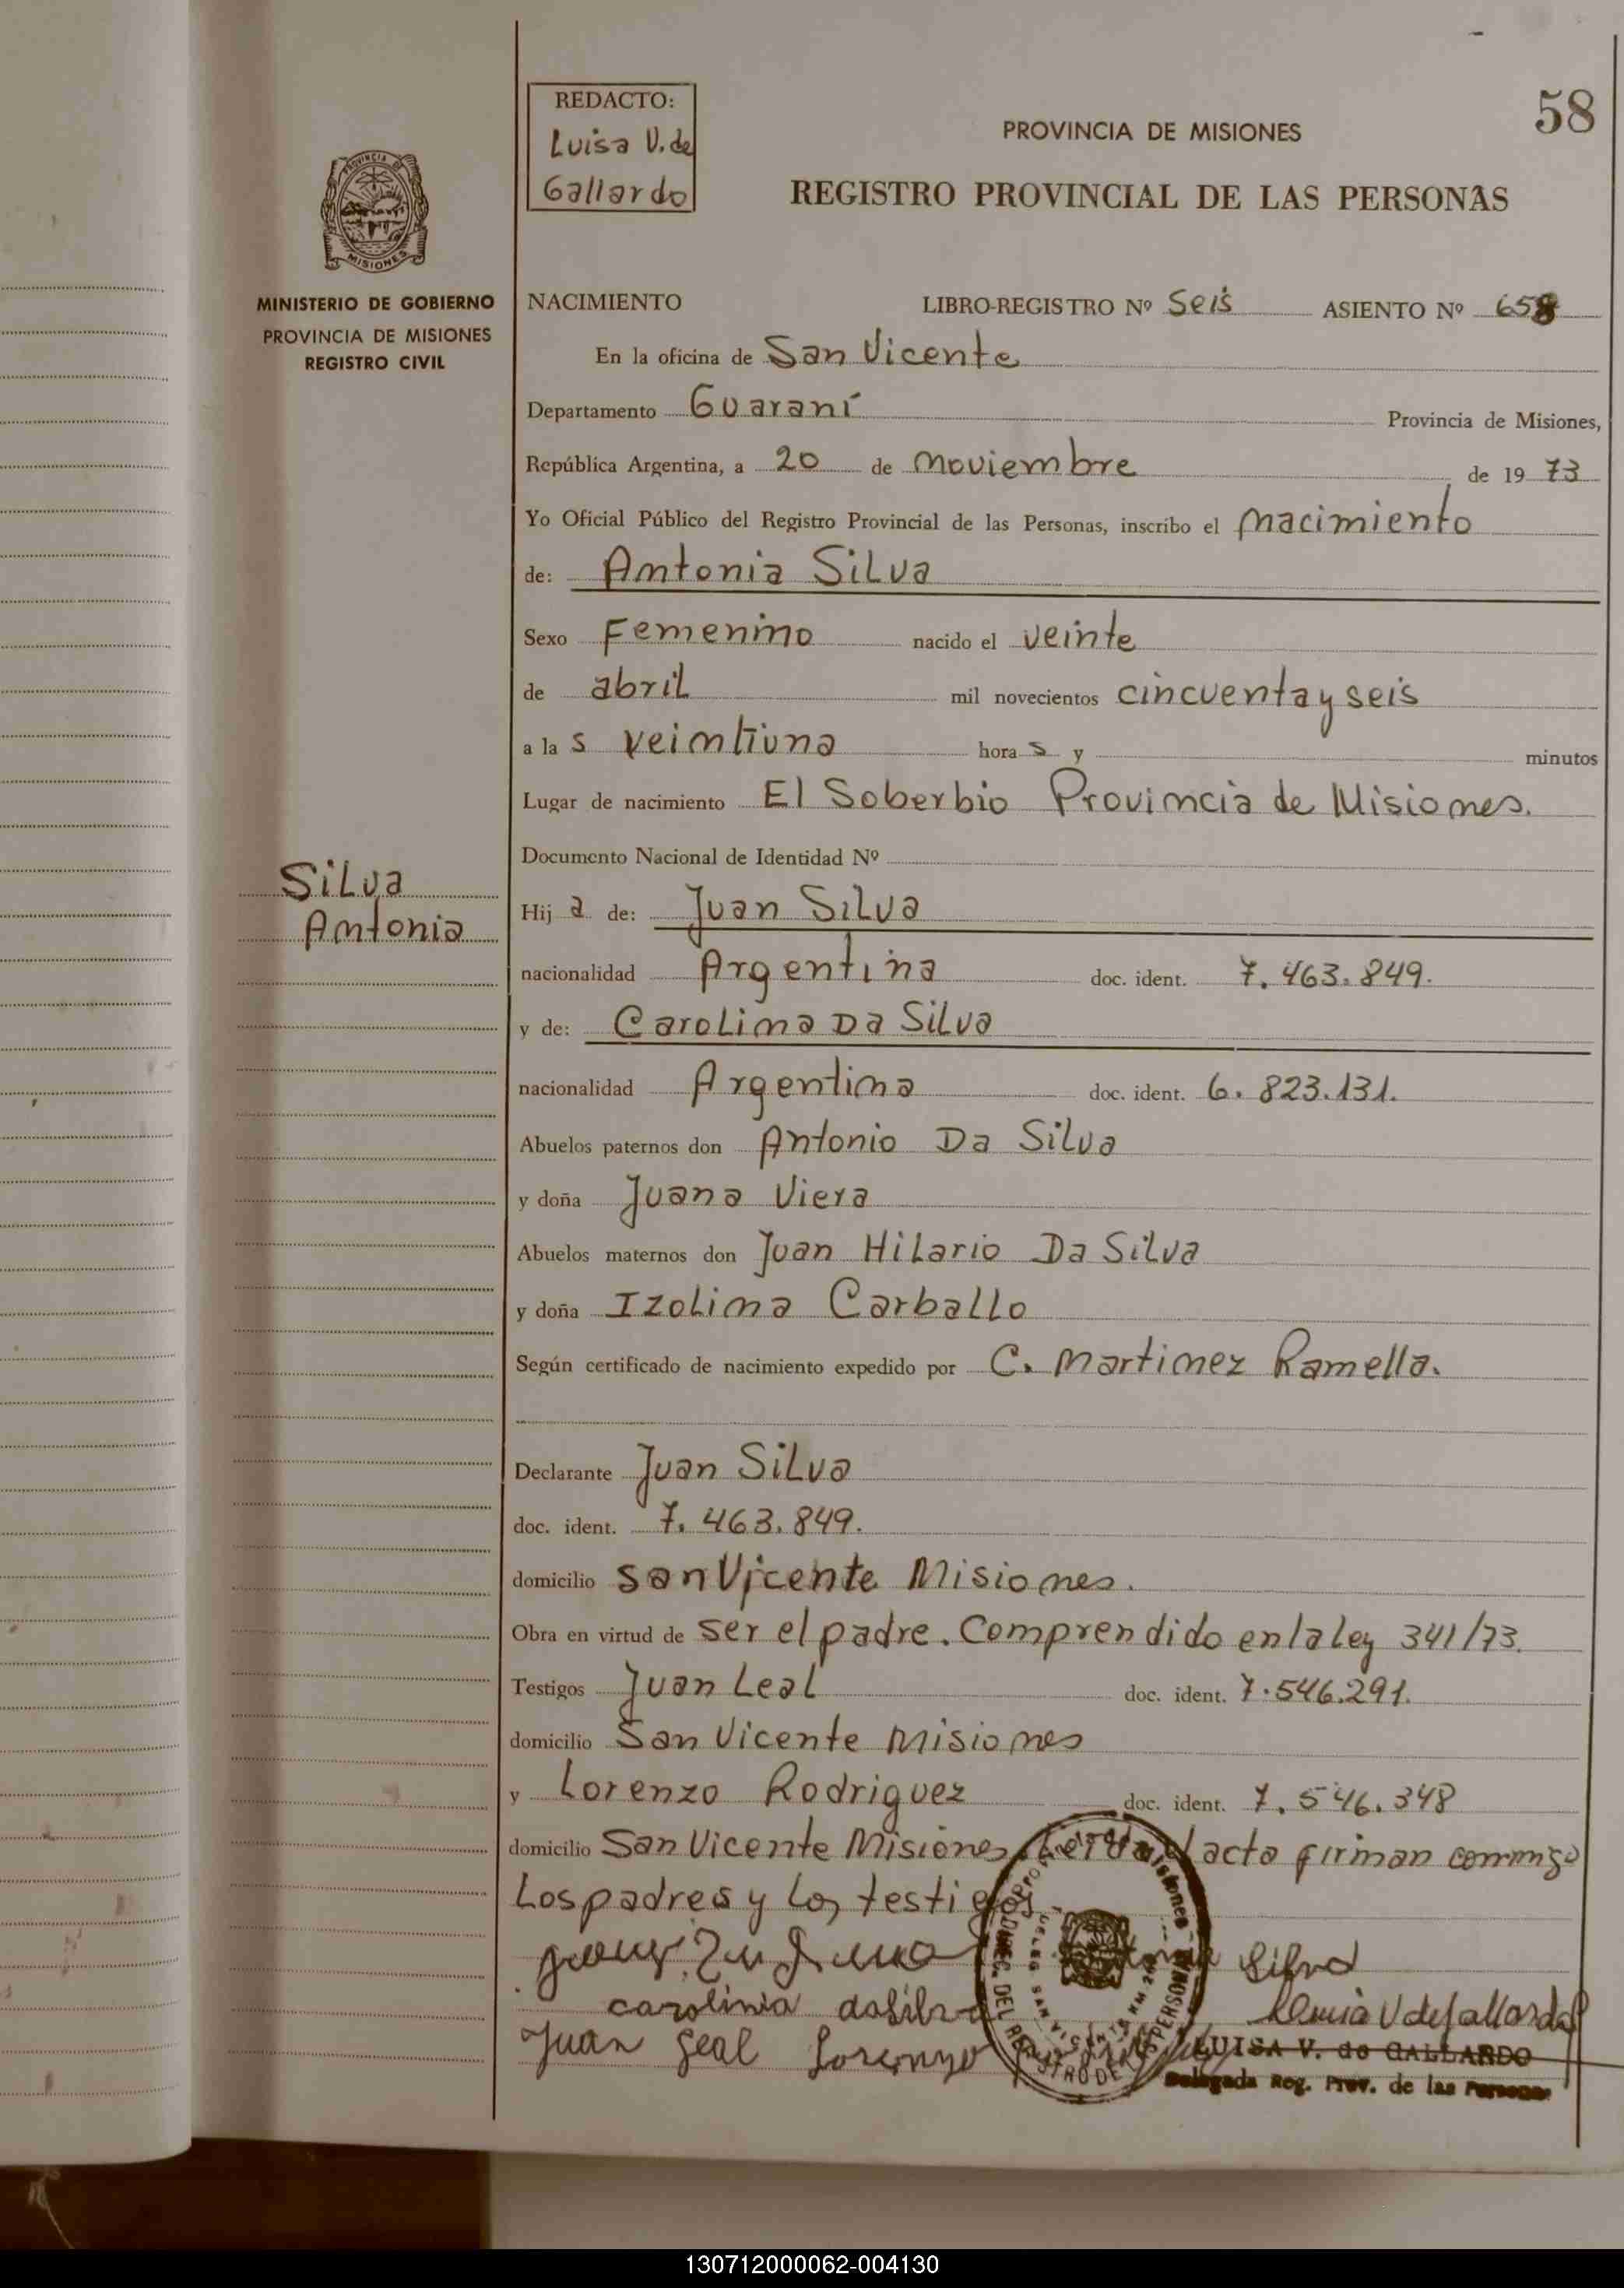 REDACTO:
Luisa V. de
Gallardo
58
PROVINCIA DE MISIONES
REGISTRO PROVINCIAL DE LAS PERSONAS
PROVINCIA DE
MISIONES
MINISTERIO DE GOBIERNO
PROVINCIA DE MISIONES
REGISTRO CIVIL
NACIMIENTO LIBRO-REGISTRO Nº Seis ASIENTO Nº 658
En la oficina de San Vicente
Departamento Guaraní Provincia de Misiones,
República Argentina, a 20 de noviembre de 19 73
Yo Oficial Público del Registro Provincial de las Personas, inscribo el nacimiento
de: Antonia Silva
Sexo Femenino nacido el veinte
de abril mil novecientos cincuenta y seis
a la s veintiuna hora s y minutos
Lugar de nacimiento El Soberbio Provincia de Misiones.
Documento Nacional de Identidad Nº
Silva
Antonia
Hij a de: Juan Silva
nacionalidad Argentina doc. ident. 7.463.849.
y de: Carolina Da Silva
nacionalidad Argentina doc. ident. 6.823.131.
Abuelos paternos don Antonio Da Silva
y doña Juana Viera
Abuelos maternos don Juan Hilario Da Silva
y doña Izolina Carballo
Según certificado de nacimiento expedido por C. Martinez Ramella.
Declarante Juan Silva
doc. ident. 7.463.849.
domicilio San Vicente Misiones.
Obra en virtud de ser el padre. Comprendido en la Ley 341/73.
Testigos Juan Leal doc. ident. 7.546.291.
domicilio San Vicente Misiones
y Lorenzo Rodriguez doc. ident. 7.546.348
domicilio San Vicente Misiones acta firman conmigo
Los padres y los testigos
Silva
carolinia dasilva
Luisa V de Gallardo
Juan Leal Lorenzo
LUISA V. de GALLARDO
Delegada Reg. Prov. de las Personas
130712000062-004130